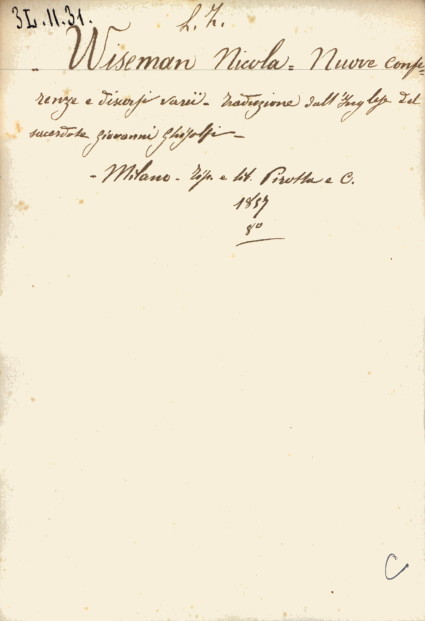 3L.11.31.
L. Z.
Wiseman Nicola = Nuove confe-
renze e discorsi varii - traduzione dall'Inglese del
sacerdote Giovanni Ghisolfi -
- Milano - Tip. e lit. Pirotta e C.
1857
8°
C